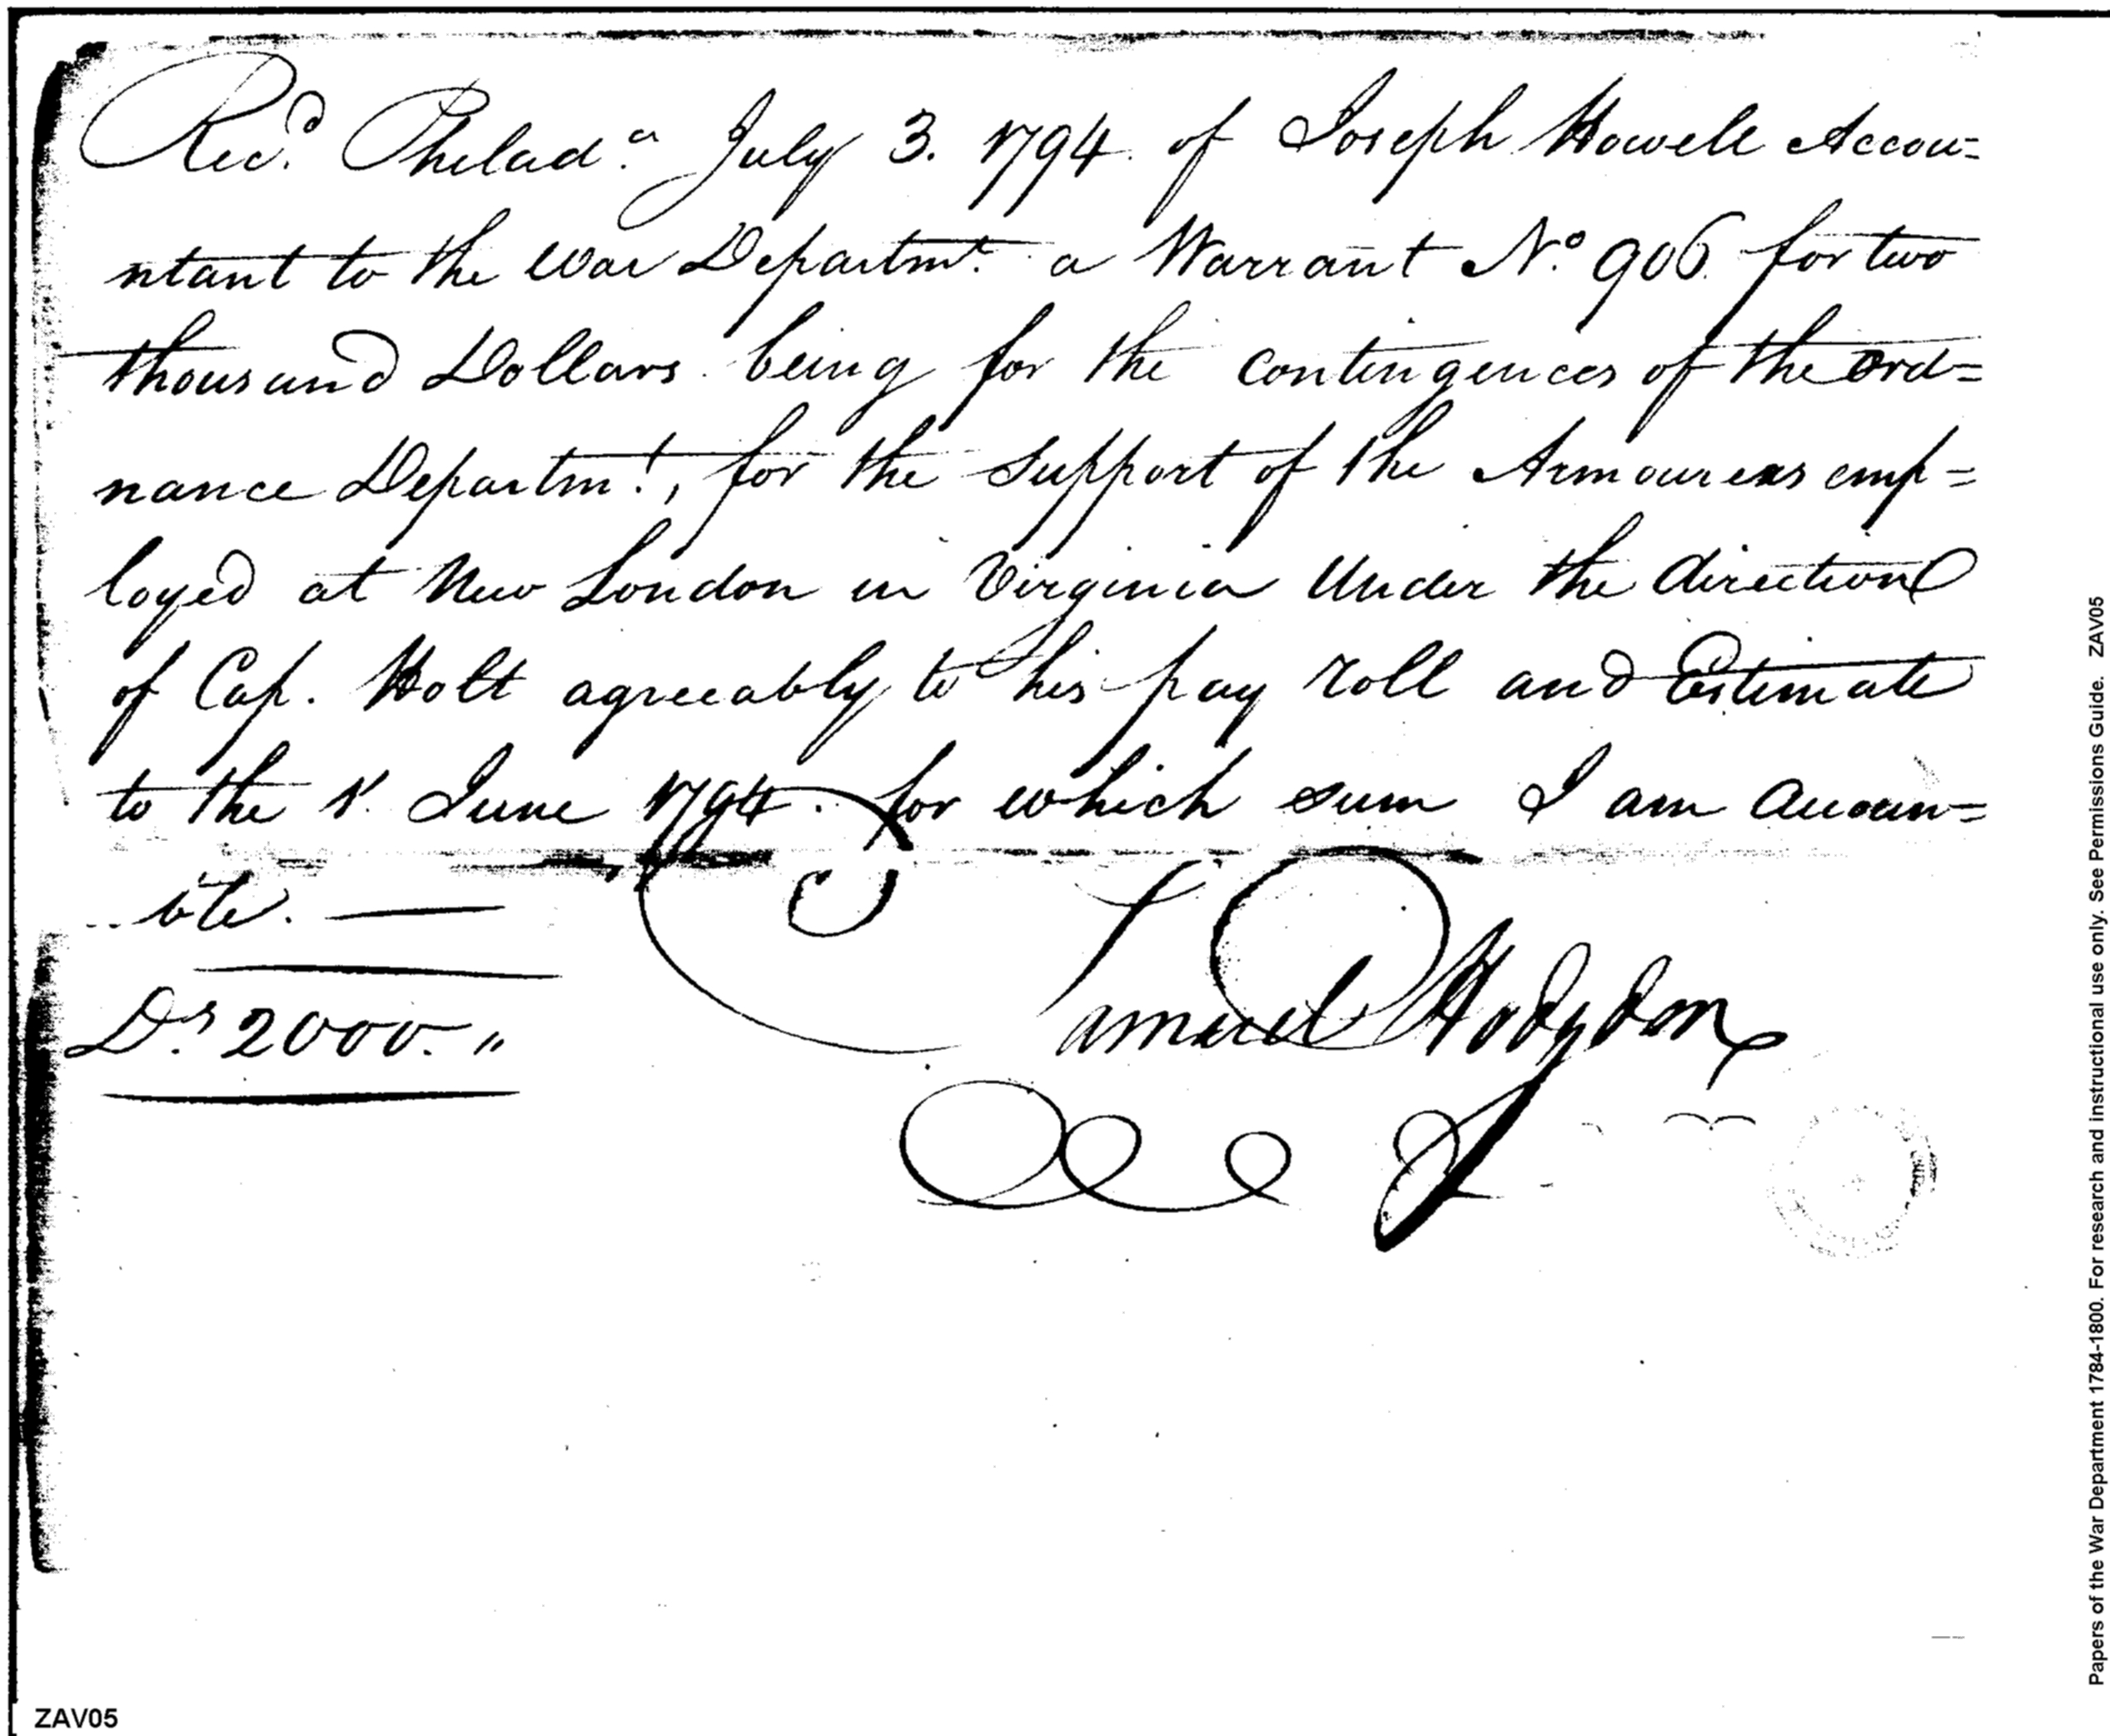 Recd. Philada. July 3. 1794. of Joseph Howell Accou=
ntant to the War Departmt. a Warrant No. 906. for two
thousand Dollars being for the contingences of the ord=
nance Departmt., for the support of the Armourers emp=
loyed at New London in Virginia Under the direction
of Cap. Holt agreeably to his pay roll and Estimate
to the 1. June 1794. for which sum I am Accoun=
ble.
Drs. 2000. "
Samuel Hodgdon
ZAV05
Papers of the War Department 1784-1800. For research and instructional use only. See Permissions Guide. ZAV05